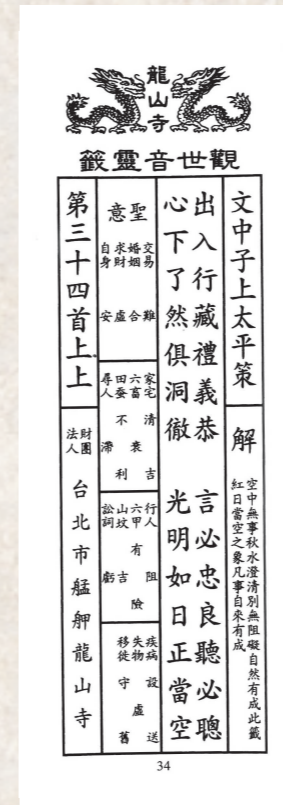 龍山寺
觀世音靈籤
文中子上太平策
解
空中無事秋水澄清別無阻礙自然有成此籤
紅日當空之象凡事自來有成
出入行藏禮義恭 言必忠良聽必聰
心下了然俱洞徹 光明如日正當空
聖意
交易 難
婚姻 合
求財 虛
自身 安
家宅 清吉
六畜 衰
田蚕 不利
尋人 滯
行人 阻
六甲 有險
山坟 吉
訟詞 虧
疾病 設送
失物 虛
移徙 守舊
第三十四首上上
財團法人 台北市艋舺龍山寺
34